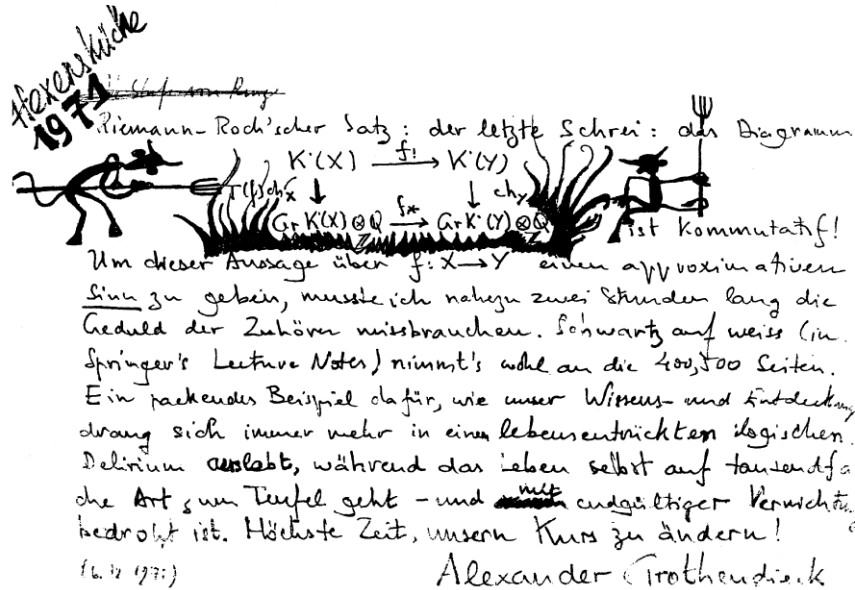 Hexenküche
1971
Riemann-Roch'scher Satz: der letzte Schrei: das Diagramm
K˙(X) f! → K˙(Y)
↓ T(f)ch_X ↓ ch_Y
Gr K˙(X) ⊗_Z Q f* → Gr K˙(Y) ⊗_Z Q
ist kommutatif!
Um dieser Aussage über f: X → Y einen approximativen
Sinn zu geben, musste ich nahezu zwei Stunden lang die
Geduld der Zuhörer missbrauchen. Schwartz auf weiss (in
Springer's Lecture Notes) nimmt's wohl an die 400, 500 Seiten.
Ein packendes Beispiel dafür, wie unser Wissens- und Entdeckung
drang sich immer mehr in einem lebensentrückten logischen
Delirium auslebt, während das Leben selbst auf tausendfa
che Art zum Teufel geht - und mit endgültiger Vernichtung
bedroht ist. Höchste Zeit, unsern Kurs zu ändern!
Alexander Grothendieck